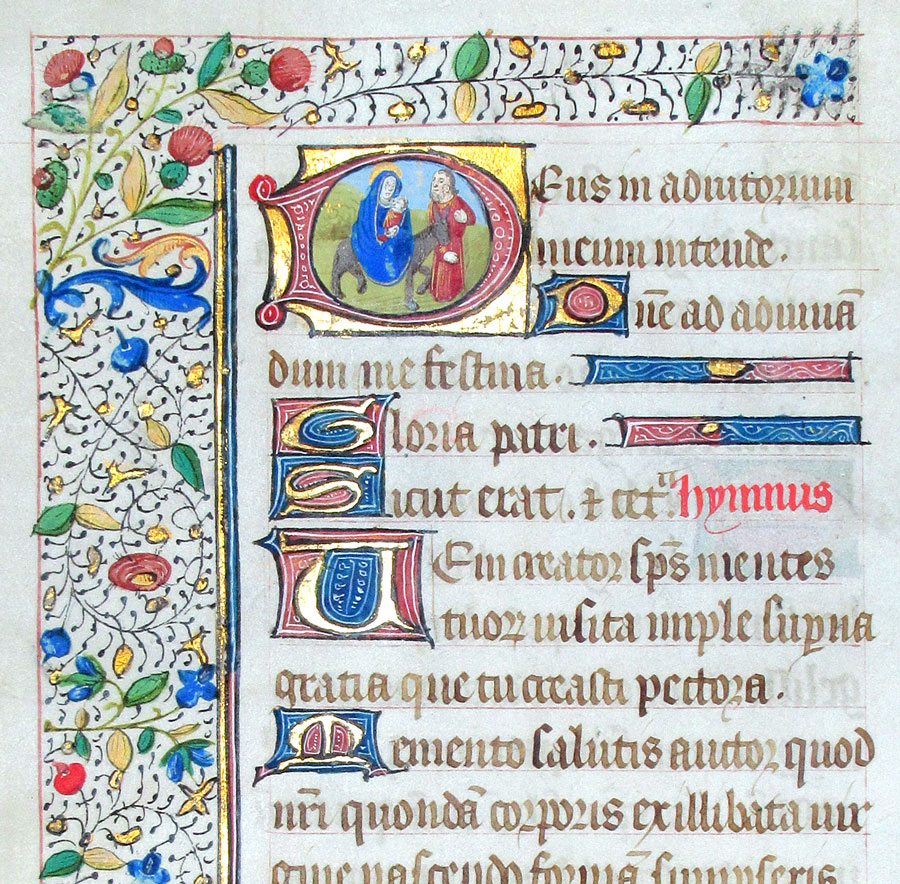 Deus in adiutorium
meum intende.
Dñe ad adiuuā
dum me festina.
Gloria patri.
Sicut erat. & cet͛. hymnus
Uem creator sp̄s mentes
tuoꝝ uisita imple sup̱na
gratia que tu creasti pectora.
Memento salutis auctor quod
nr̄i quondā corporis ex illibata uir
gine nascendo formā sumpseris